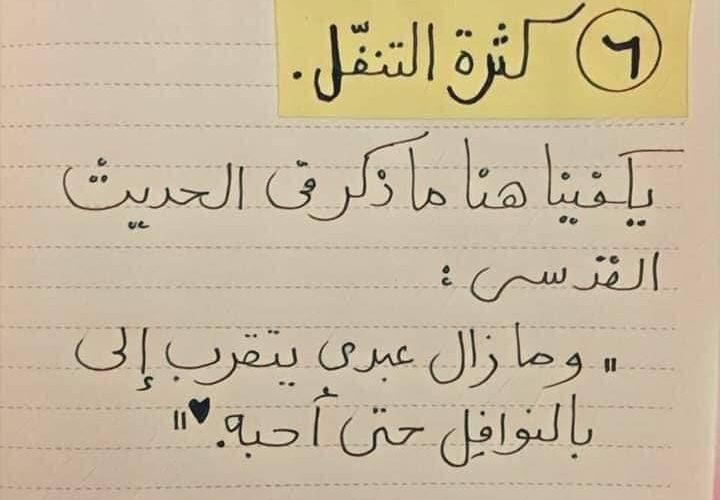 ٦ كثرة التنفّل.
يكفينا هنا ما ذكر في الحديث
القدسي :
"وما زال عبدي يتقرب إلى
بالنوافِل حتى أحبه.♥"